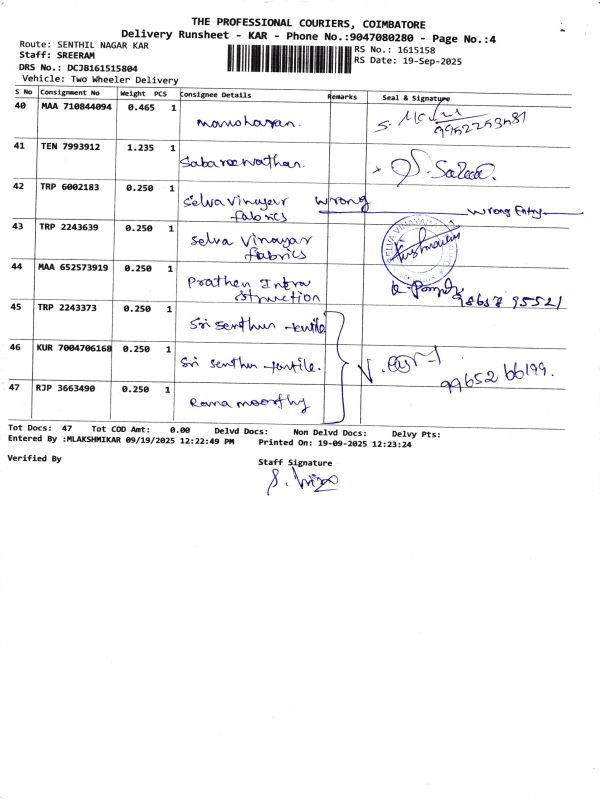 THE PROFESSIONAL COURIERS, COIMBATORE
Delivery Runsheet - KAR - Phone No.:9047080280 - Page No.:4
Route: SENTHIL NAGAR KAR
Staff: SREERAM
RS No.: 1615158
DRS No.: DCJB161515804
RS Date: 19-Sep-2025
Vehicle: Two Wheeler Delivery
S No Consignment No Weight PCS Consignee Details Remarks Seal & Signature
40 MAA 710844094 0.465 1 manoharan.
9952253581
41 TEN 7993912 1.235 1 Sabareenathan.
42 TRP 6002183 0.250 1 Selva Vinayar wrong
fabrics wrong Entry
43 TRP 2243639 0.250 1 Selva Vinayar
fabrics
SELVA VINAYA
44 MAA 652573919 0.250 1 Prathen Infra
struction
95521
45 TRP 2243373 0.250 1 Sri Senthur textile
46 KUR 7004706168 0.250 1 Sri Senthur textile.
9965266199.
47 RJP 3663490 0.250 1 Rama moorthy
Tot Docs: 47 Tot COD Amt: 0.00 Delvd Docs: Non Delvd Docs: Delvy Pts:
Entered By :MLAKSHMIKAR 09/19/2025 12:22:49 PM Printed On: 19-09-2025 12:23:24
Verified By
Staff Signature